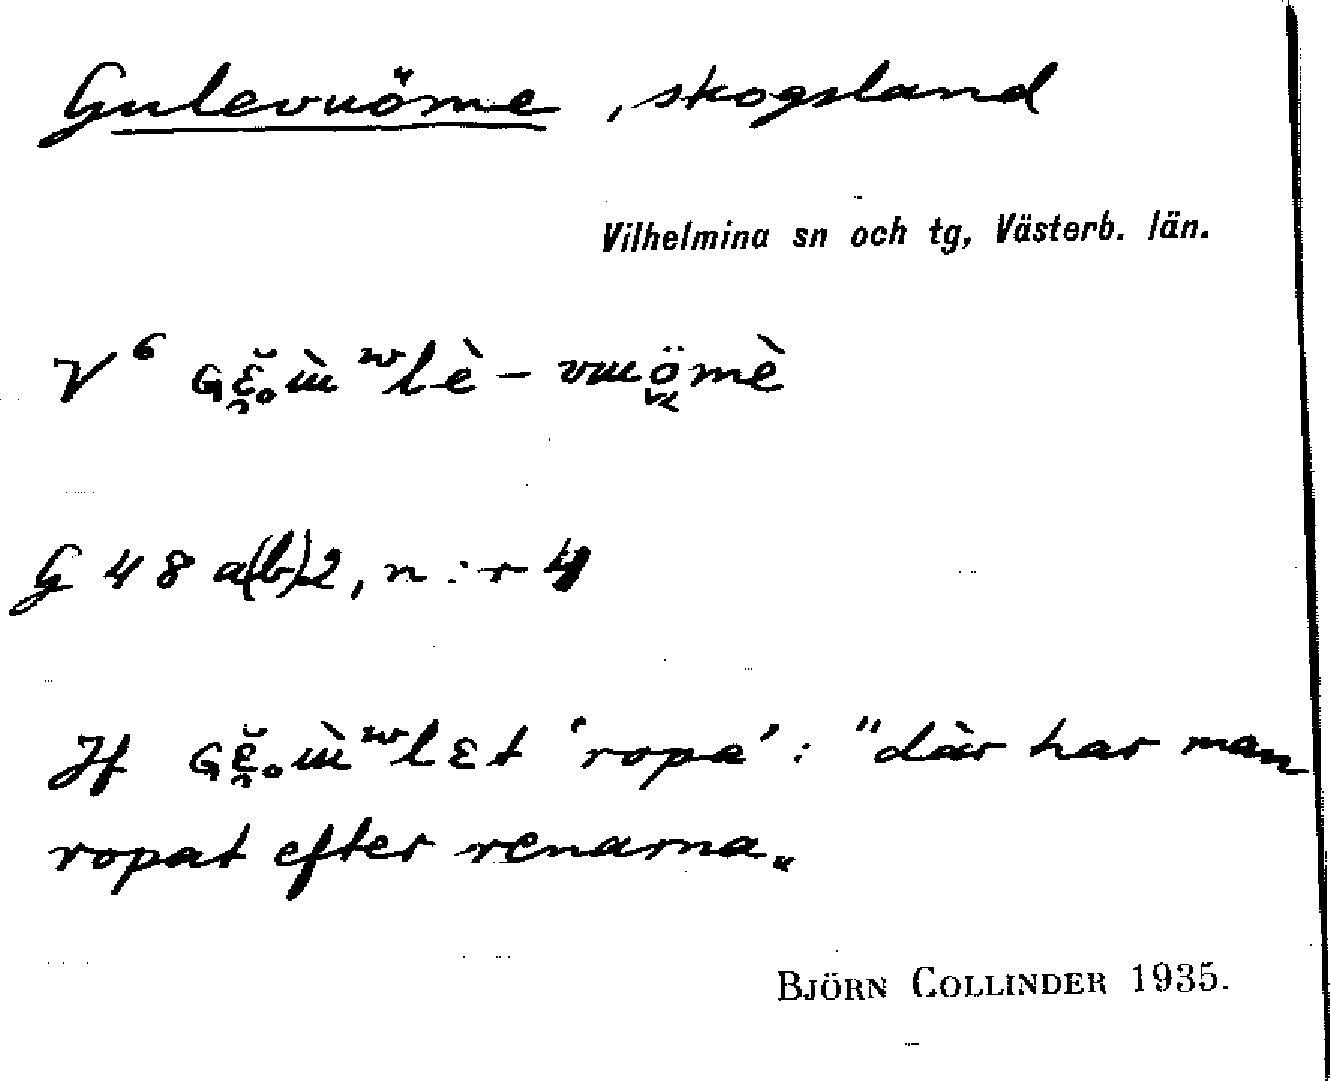 Gulevuöme, skogsland
Vilhelmina sn och tg, Västerb. län.
V⁶ Gɛ̮̆ₒɯ̀ʷlè - vɯö̬mè
G 48 a(b)2, n:r 4
Jf Gɛ̮̆ₒɯ̀ʷlɛt 'ropa': "där har man
ropat efter renarna„
BJÖRN COLLINDER 1935.